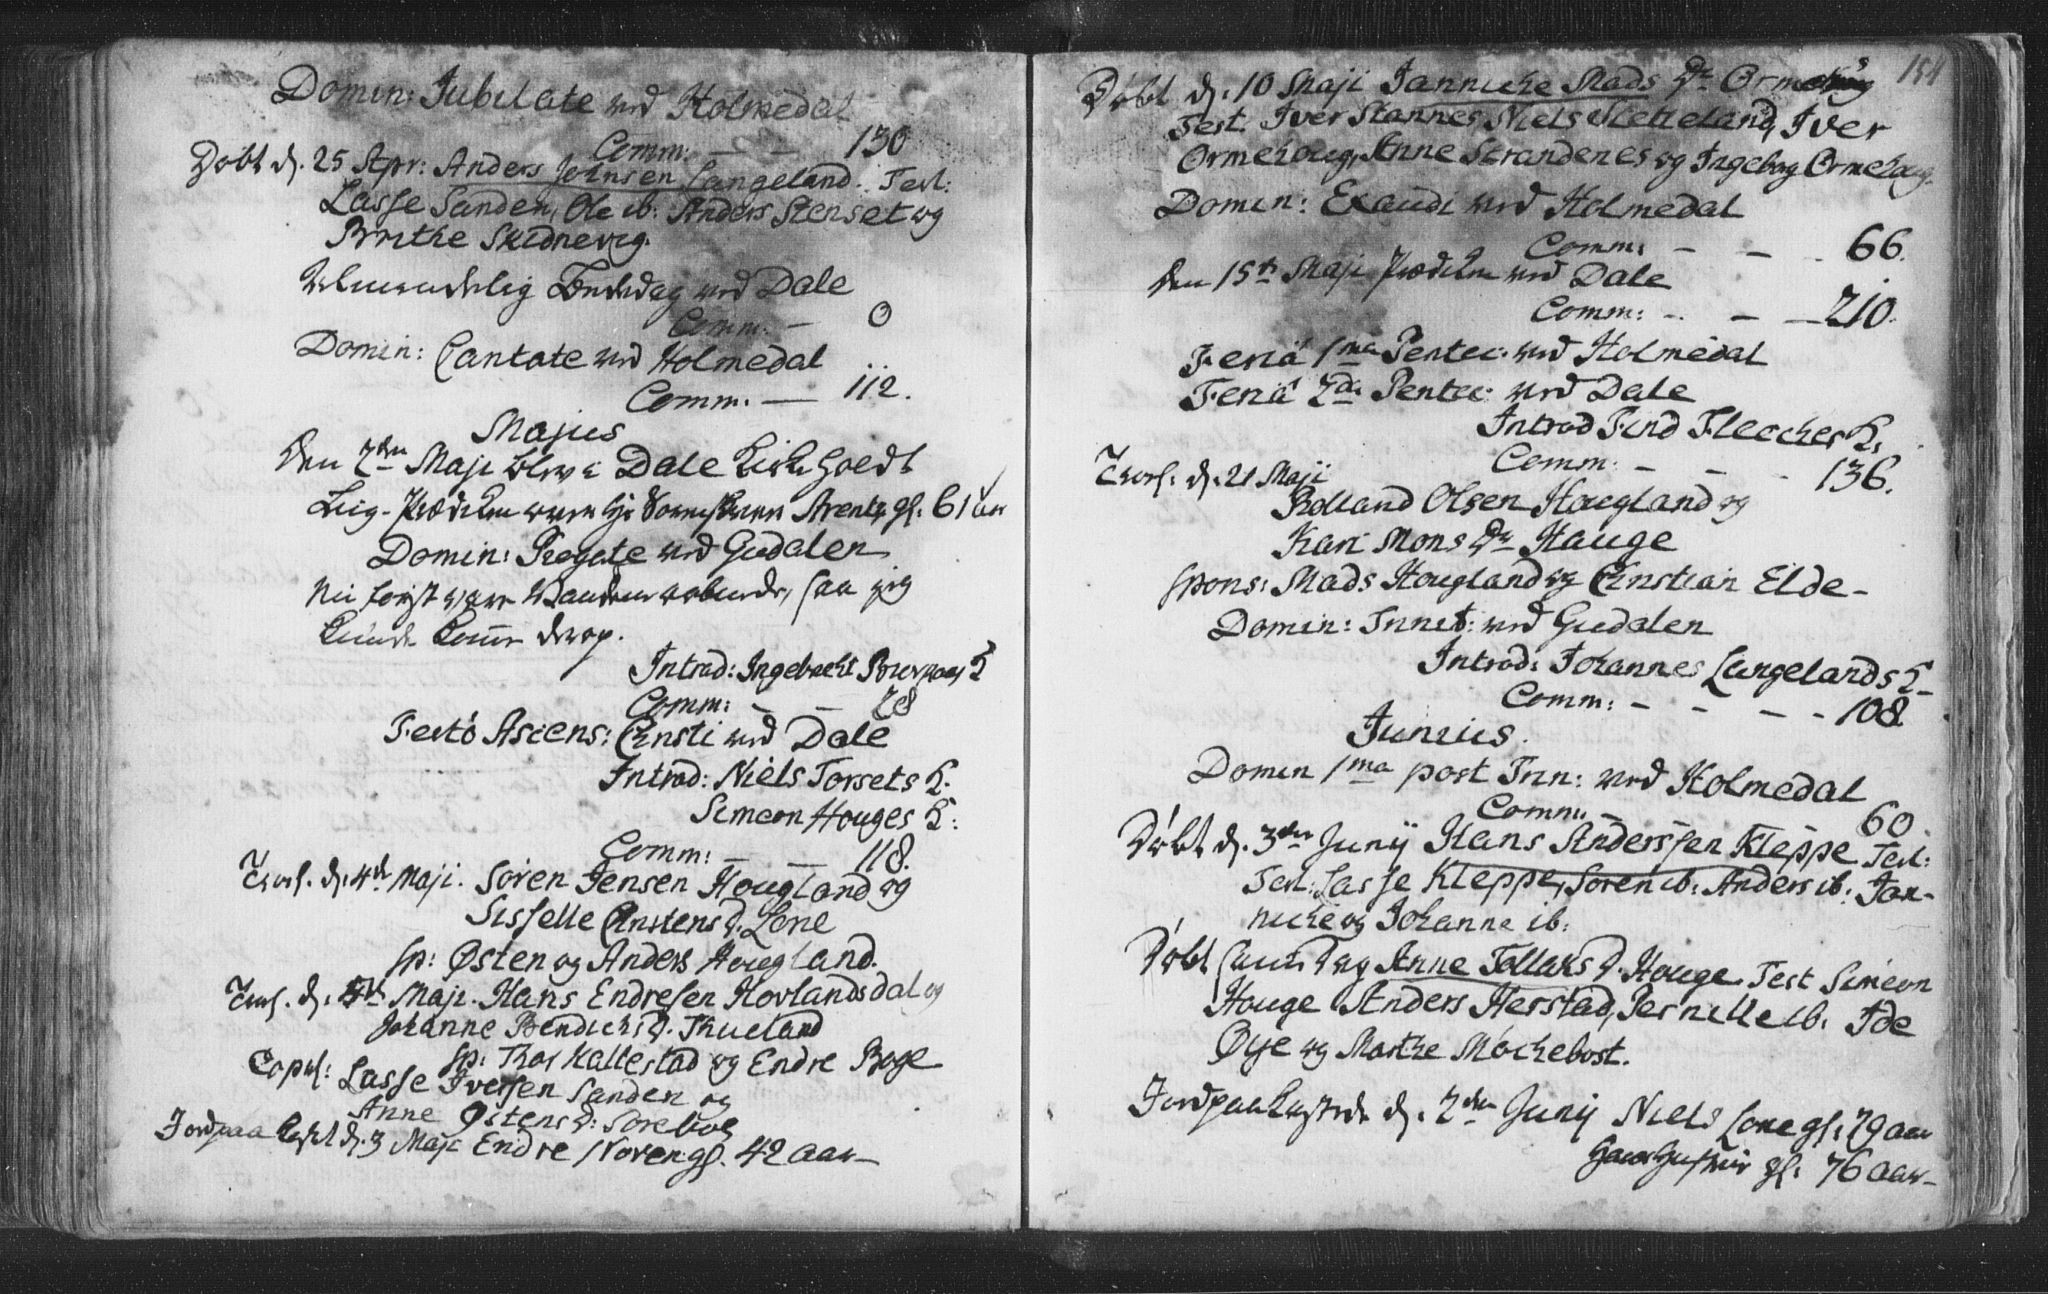 Domin: Jubilate ved Holmedal
Comm: — — 130
Døbt d. 25 Apr: Anders Johnsen Langeland. Test:
Lasse Sanden, Ole ib: Anders Stenset og
Brithe Skidnevig.
Almindelig Bededag ved Dale
Comm: — 0
Domin: Cantate ved Holmedal
Comm. — 112.
Majus
Den 2den Maji blev i Dale Kirke holdt
Liig-Prædiken over Hr Arentz gl: 61 aar
Domin: Rogate ved Gudalen
Nu først var Vandene aabnede, saa jeg
kunde komme derop.
Introd: Ingebrecht K
Comm: — — 28
Festo Ascens: Christi ved Dale
Introd: Niels Torsets K.
Simeon Houges K:
Comm: — — 118.
Trol. d. 4de Maji. Sören Jensen Hougland og
Sisselle Christens D. Lone
Sp: Østen og Anders Hougland.
Trol. d. 5te Maji. Hans Endresen Hovlandsdal og
Johanne Bendichs D. Thueland
Sp: Thor Kallestad og Endre Boge
Copul: Lasse Iversen Sanden og
Anne Østens D: Sorebøe
Jordpaakastet d. 3 Maji Endre Noren gl. 42 aar —
154
Døbt d. 10 Maji Jannicke Mads Dr Ormehoug
Test: Iver Stannes, Niels Sletteland, Iver
Ormehoug, Anne Strandenes og Ingeborg Ormehoug.
Domin: Exaudi ved Holmedal
Comm: — — - 66.
Den 15de Maji Prædiken ved Dale
Comm: - — — 210.
Feriâ 1ma Pentec: ved Holmedal
Feriâ 2da Pentec: ved Dale
Introd Find Fleches K.
Comm: — — - 136.
Trol. d. 21 Maji
Rolland Olsen Hougland og
Kari Mons Dr Hauge
Spons: Mads Hougland og Christian Elde -
Domin: Trinit: ved Gudalen
Introd: Johannes Langelands K-
Comm: - - — - 108
Junius.
Domin 1ma post Trin: ved Holmedal
Comm: — — 60
Døbt d. 3die Junij Hans Anderssen Kleppe Test:
Test: Lasse Kleppe, Soren ib: Anders ib: Jan-
niche og Johanne ib:
Døbt samme Dag Anne Tollaks D. Houge Test Simeon
Houge Anders Herstad, Pernille ib. Ide
Øye og Marthe Mochebost.
Jordpaakastede d. 2den Junij Niels Lone gl: 79 aar
gl: 76 aar -